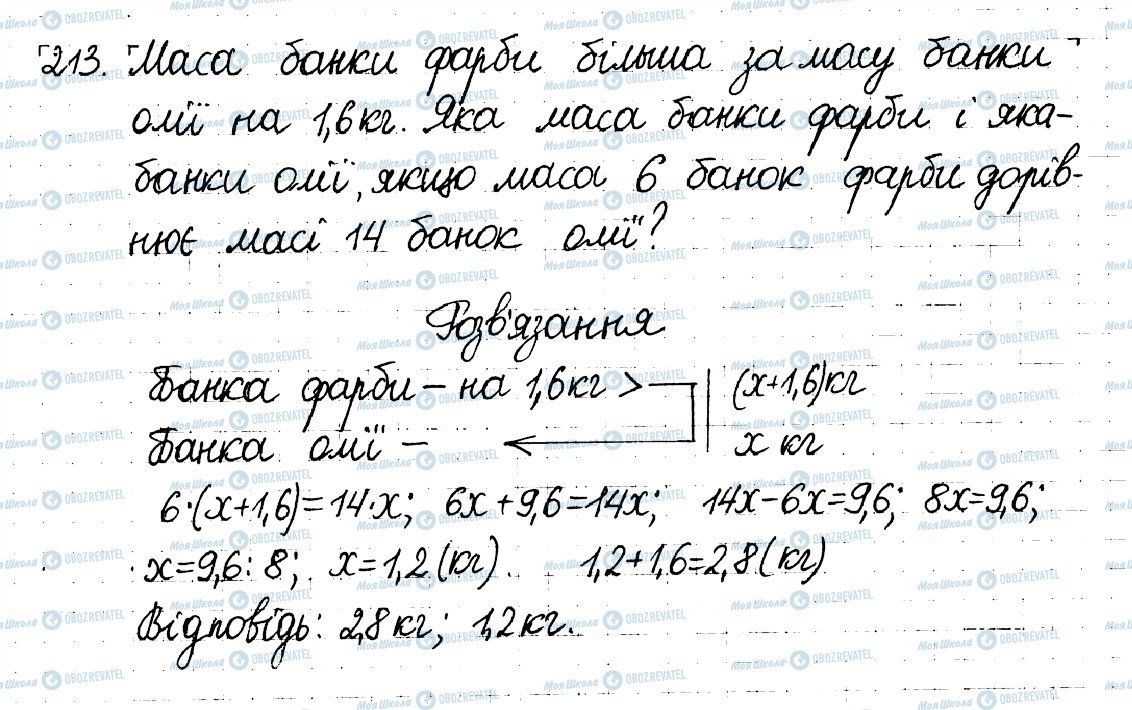 213. Маса банки фарби більша за масу банки
олії на 1,6 кг. Яка маса банки фарби і яка-
банки олії, якщо маса 6 банок фарби дорів-
нює масі 14 банок олії?
Розв'язання
Банка фарби – на 1,6 кг > (х+1,6) кг
Банка олії – х кг
6·(х+1,6)=14·х; 6х+9,6=14х; 14х-6х=9,6; 8х=9,6;
х=9,6:8; х=1,2 (кг). 1,2+1,6=2,8 (кг)
Відповідь: 2,8 кг; 1,2 кг.
Моя Школа OBOZREVATEL